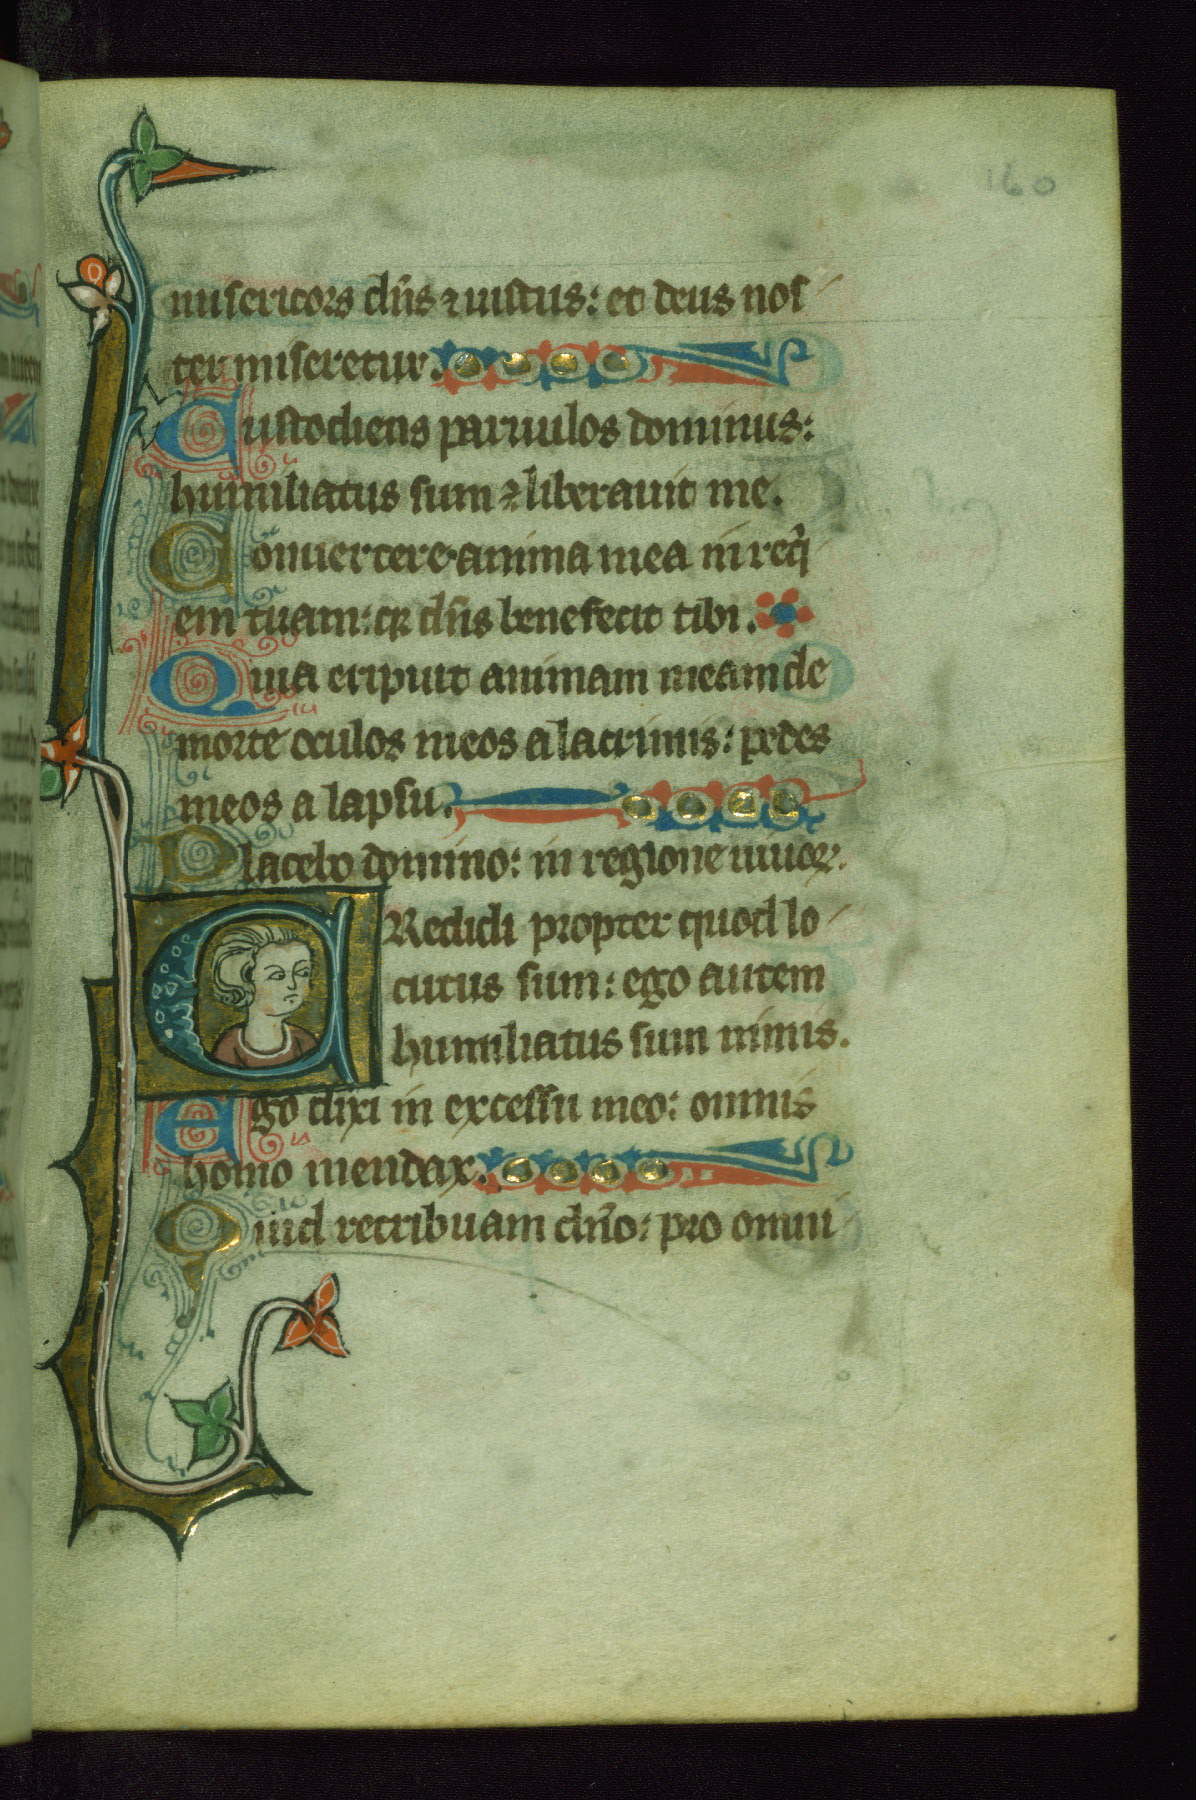 160
misericors dn̄s ⁊ iustus: et deus nos
ter miseretur.
Custodiens paruulos dominus:
humiliatus sum ⁊ liberauit me.
Conuertere anima mea in requi
em tuam: qꝛ dn̄s benefecit tibi.
Quia eripuit animam meam de
morte oculos meos a lacrimis: pedes
meos a lapsu.
Placebo domino: in regione uiuoꝝ.
CRedidi propter quod lo
cutus sum: ego autem
humiliatus sum nimis.
Ego dixi in excessu meo: omnis
homo mendax.
Quid retribuam dn̄o: pro omni